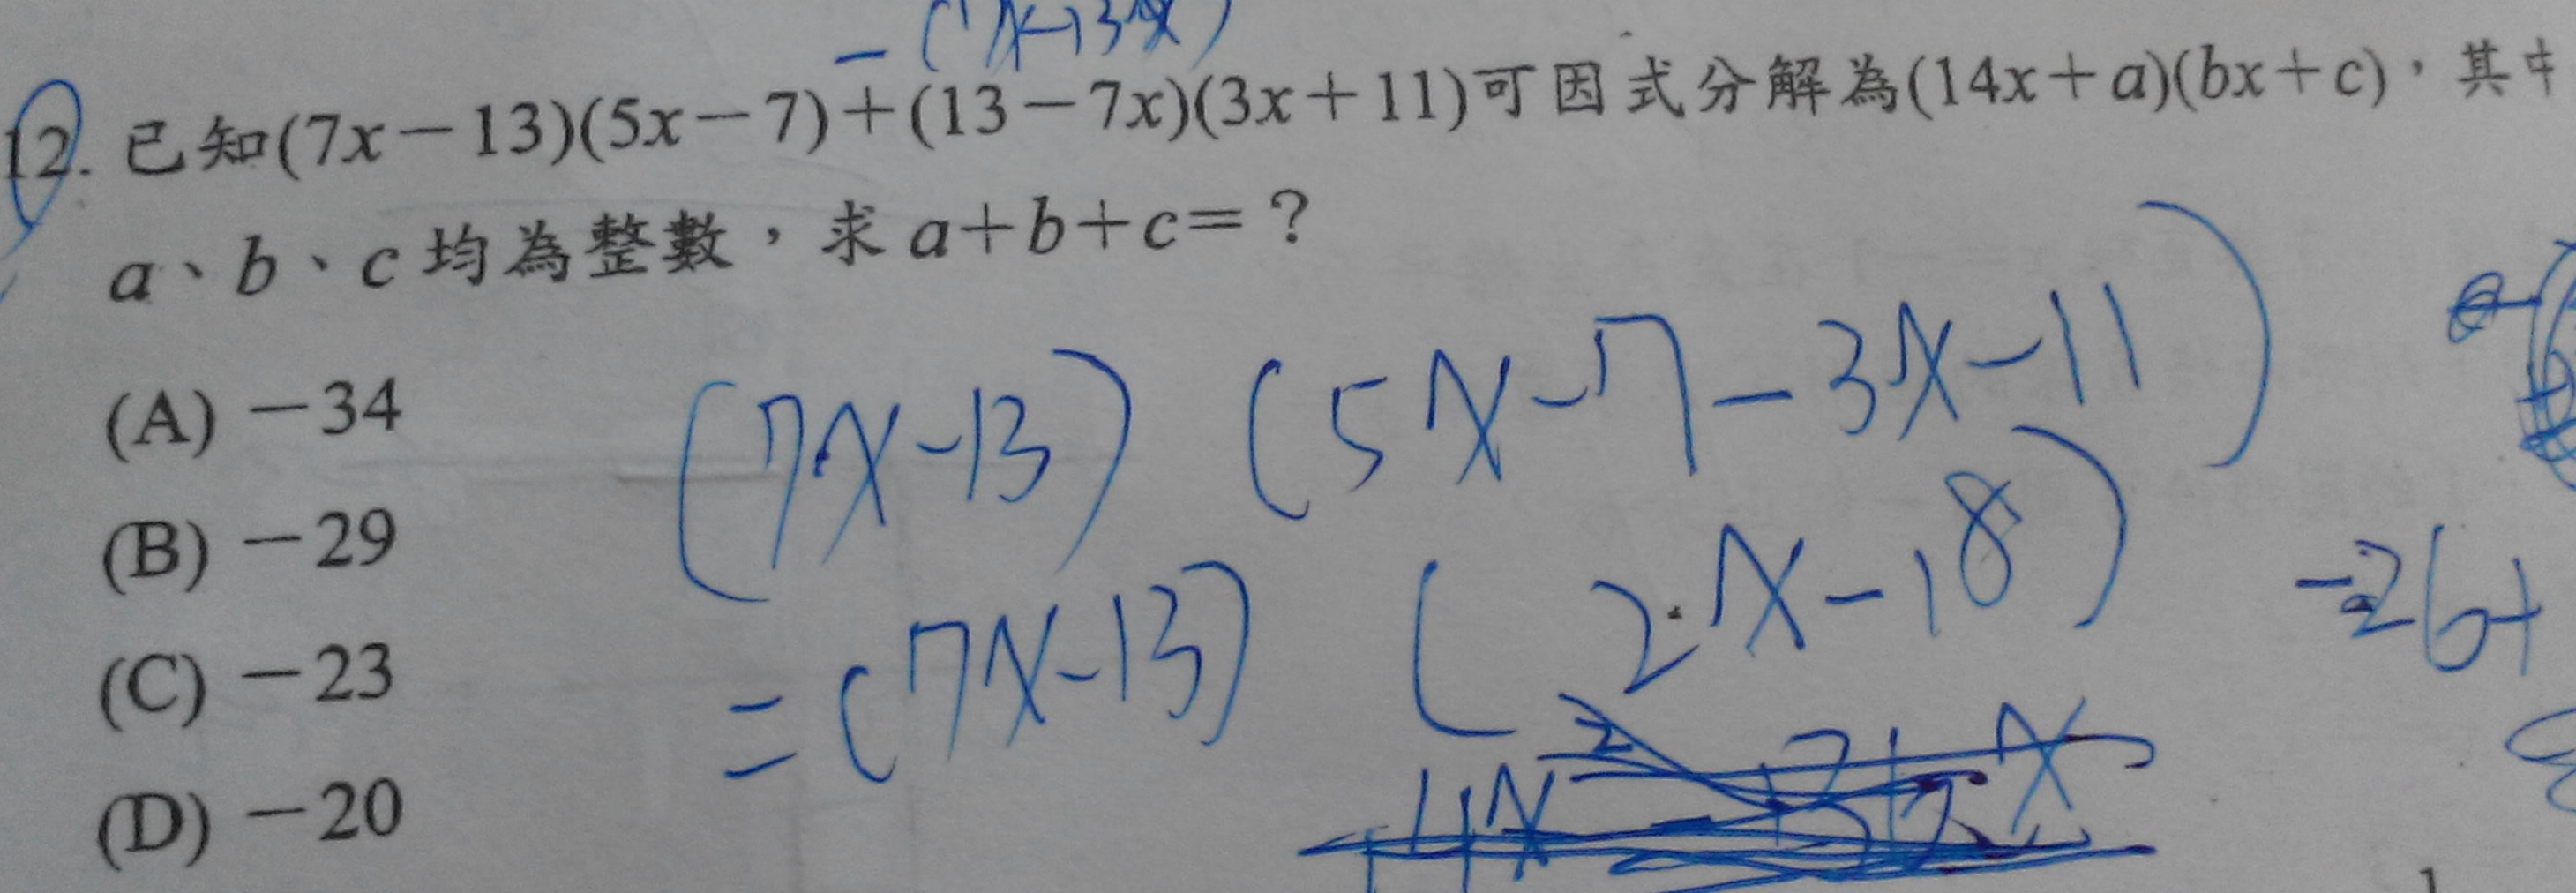 12. 已知(7x－13)(5x－7)＋(13－7x)(3x＋11)可因式分解為(14x＋a)(bx＋c)，其中
a、b、c均為整數，求a＋b＋c＝？
(A) －34
(B) －29
(C) －23
(D) －20
(7x-13) (5x-7-3x-11)
=(7x-13) (2x-18)
-26+